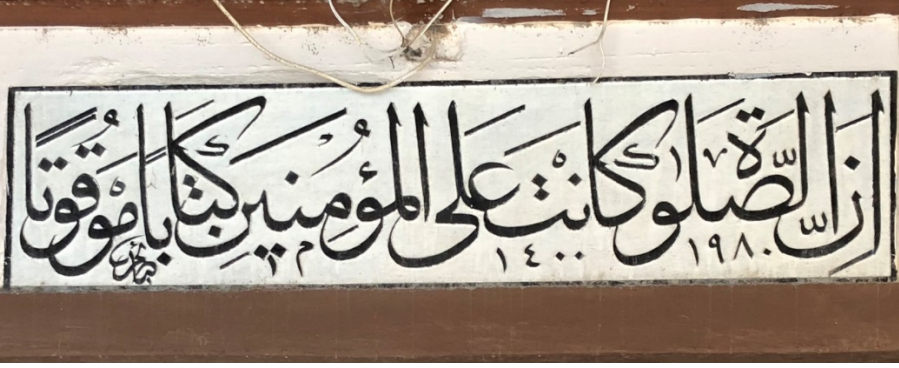 إن الصلوة كانت على المؤمنين كتابا موقوتا
١٩٨٠ م ١٤٠٠